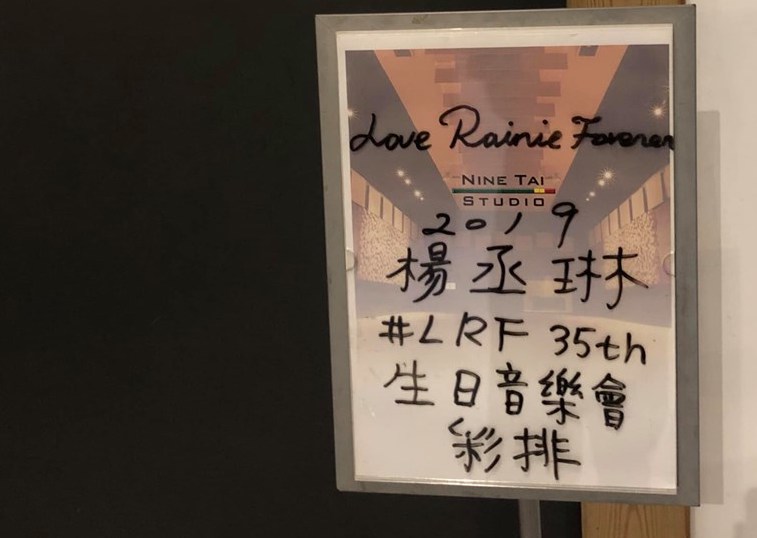 Love Rainie Forever
NINE TAI
STUDIO
2019
楊丞琳
#LRF 35th
生日音樂會
彩排